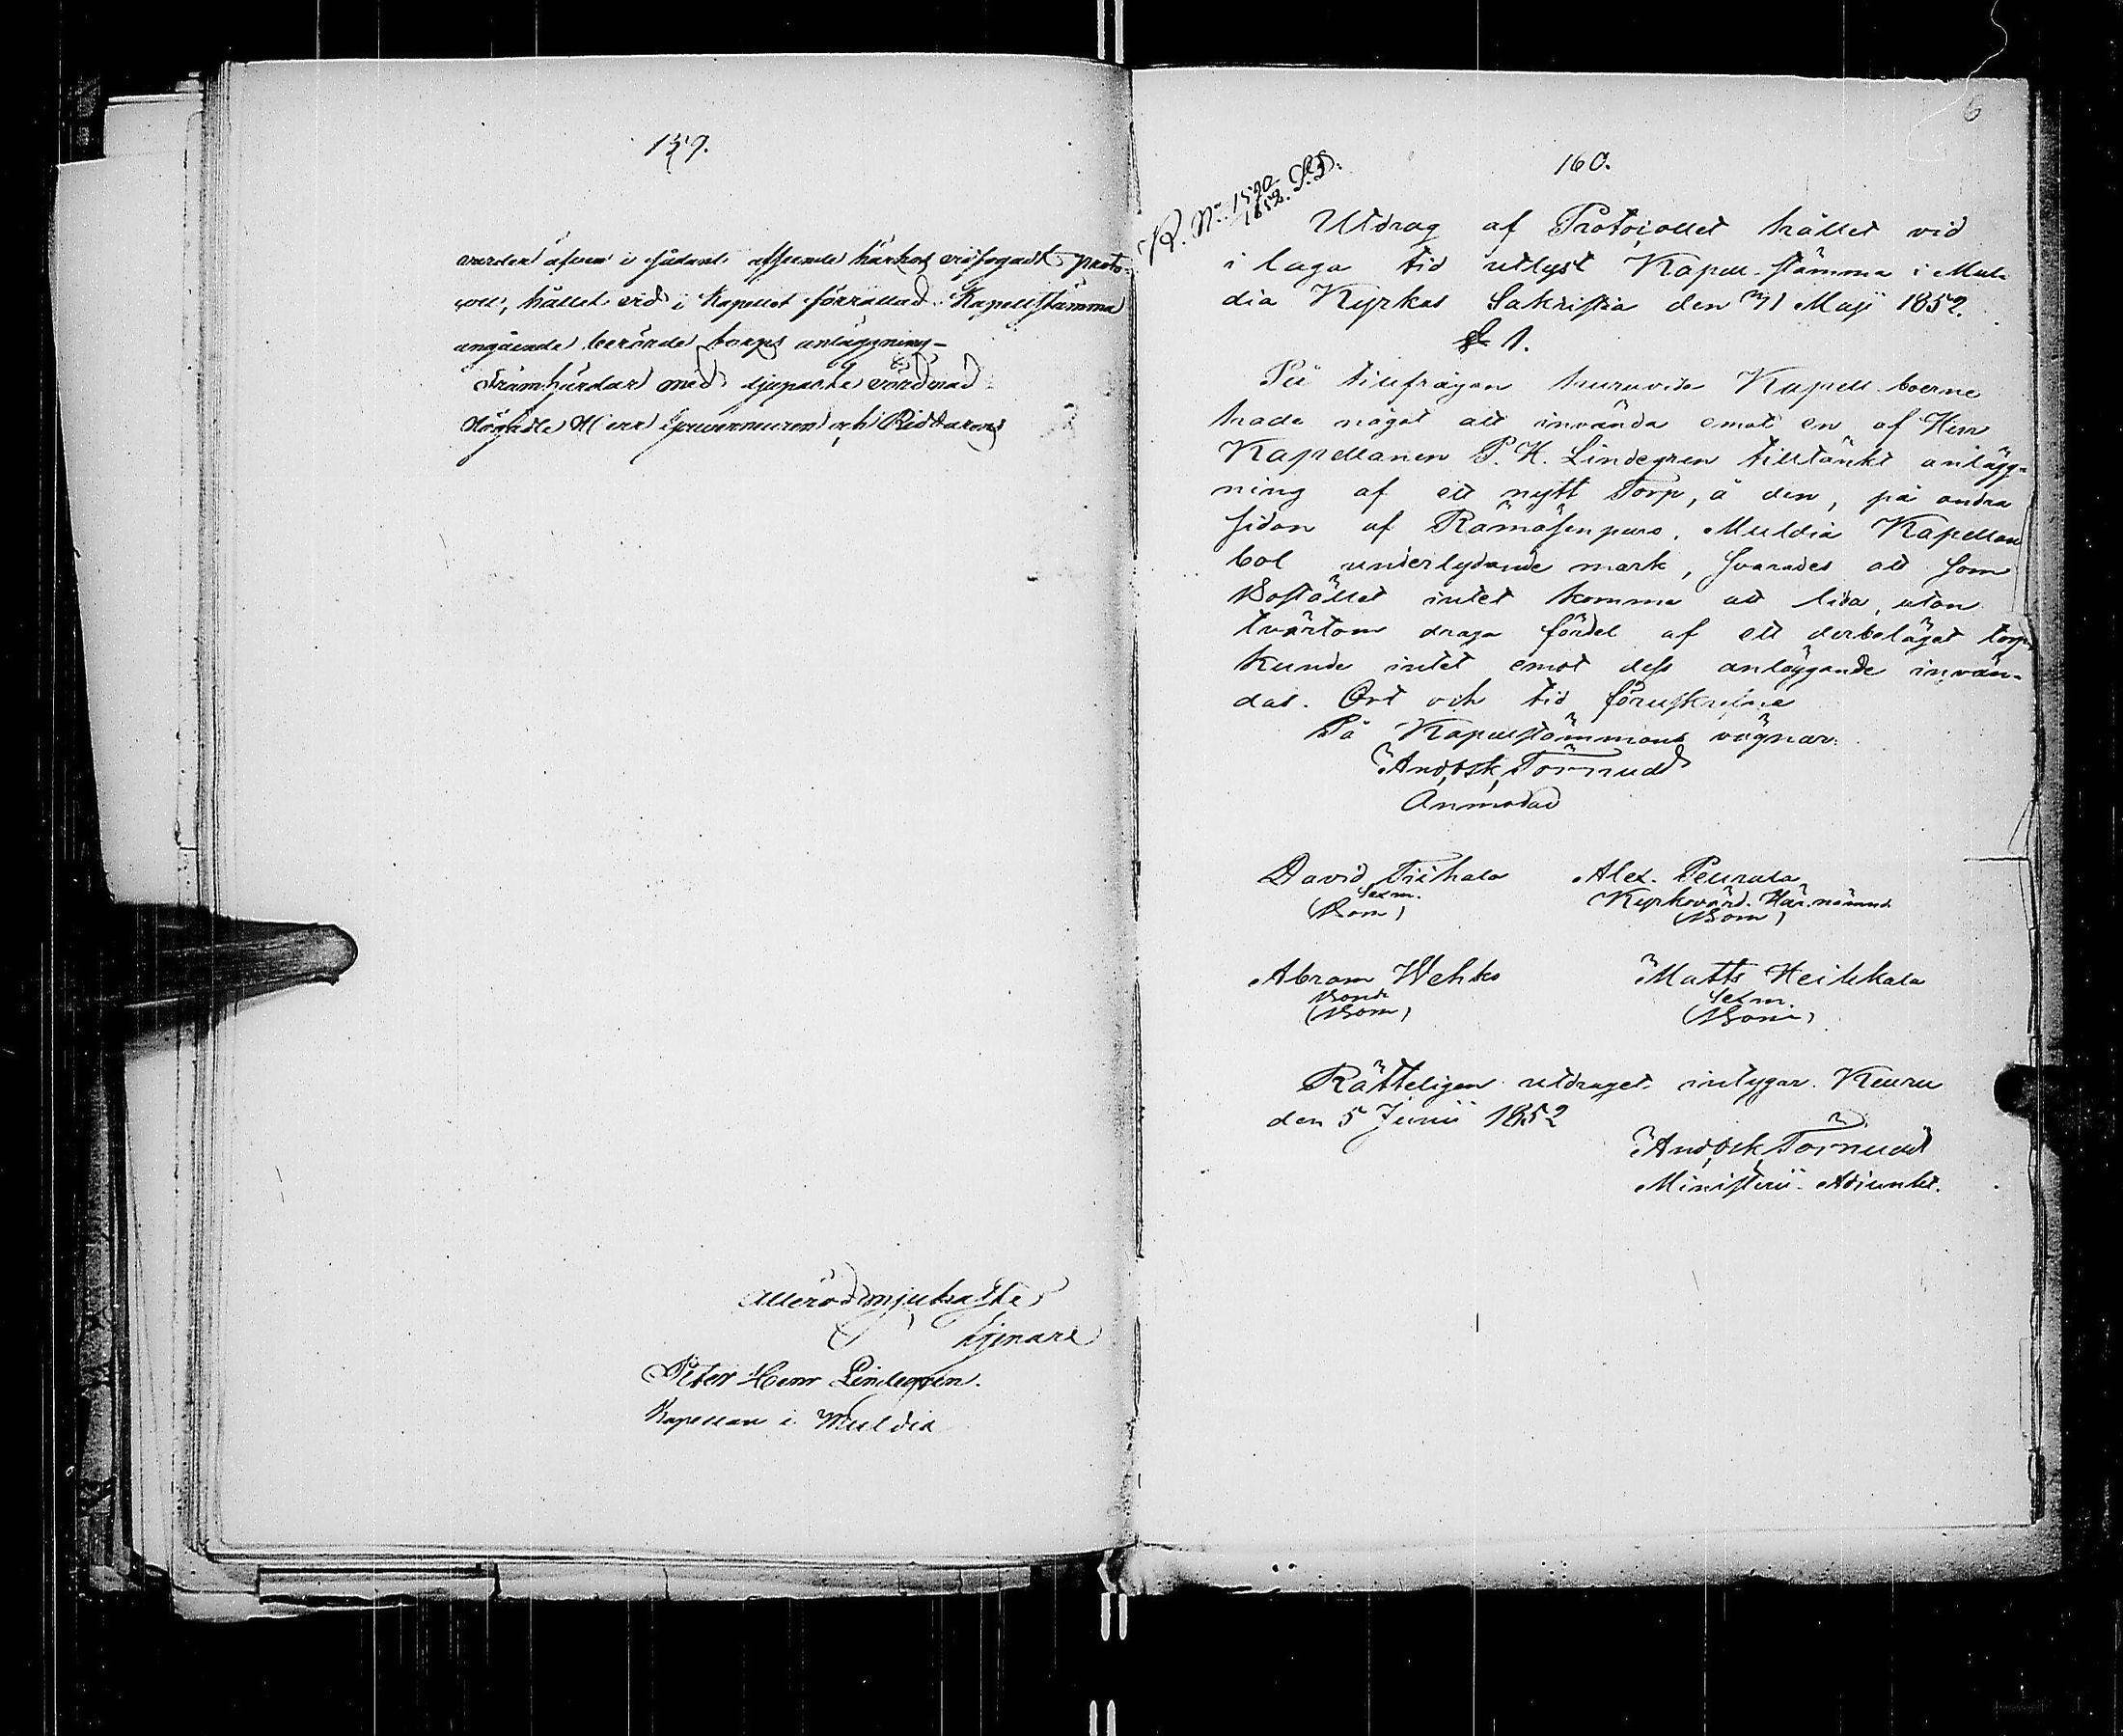 159.
varder äfven i sådant afseende härhos vidfogadt proto-
coll, hållet vid i Kapellet förrättad Kapellstämma
angående berörde torps anläggning-
Framhärdar med djupaste vördnad
Högädle Herr Gouverneurens och Riddarens
allerödmjukaste
tjenare
Peter Henr Lindegren.
Kapellan i Muldia
6
160.
R. No. 1590/1852. S.D.
Utdrag af Protocollet hållet vid
i laga tid utlyst Kapell-stämma i Mul-
dia Kyrkas Sakristia den 31 Maji 1852.
§ 1.
På tillfrågan huruvida Kapell-boerne
hade något att invända emot en af Herr
Kapellanen P. H. Lindegren tilltänkt anlägg-
ning af ett nytt Torp, å den, på andra
sidan af Rämäsenpuro, Muldia Kapellans
bol underlydande mark, svarades att som
Bostället intet komme att lida, utan
tvärtom draga fördel af ett derbeläget torp,
kunde intet emot dess anläggande invän-
das. Ort och tid föruskrifne
På Kapellstämmans vägnar:
And. Osk. Törnudd
Anmodad
David Tiihala Alex. Peurala
Sexm. Kyrkovärd. Här. nämnd.
(Bom) (Bom)
Abram Wehko Matts Heikkala
Bonde Sexm.
(Bom) (Bom)
Rätteligen utdraget intygar. Keuru
den 5 Junii 1852
And. Osk. Törnudd
Ministerii-Adjunkt.